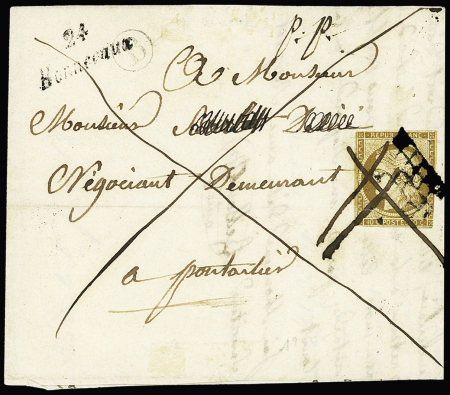 24
Bonnevaux
B
p. p.
A Monsieur
Monsieur
Négociant Demeurant
a pontarlier
REPUB FRANC
10 POSTES 10 C